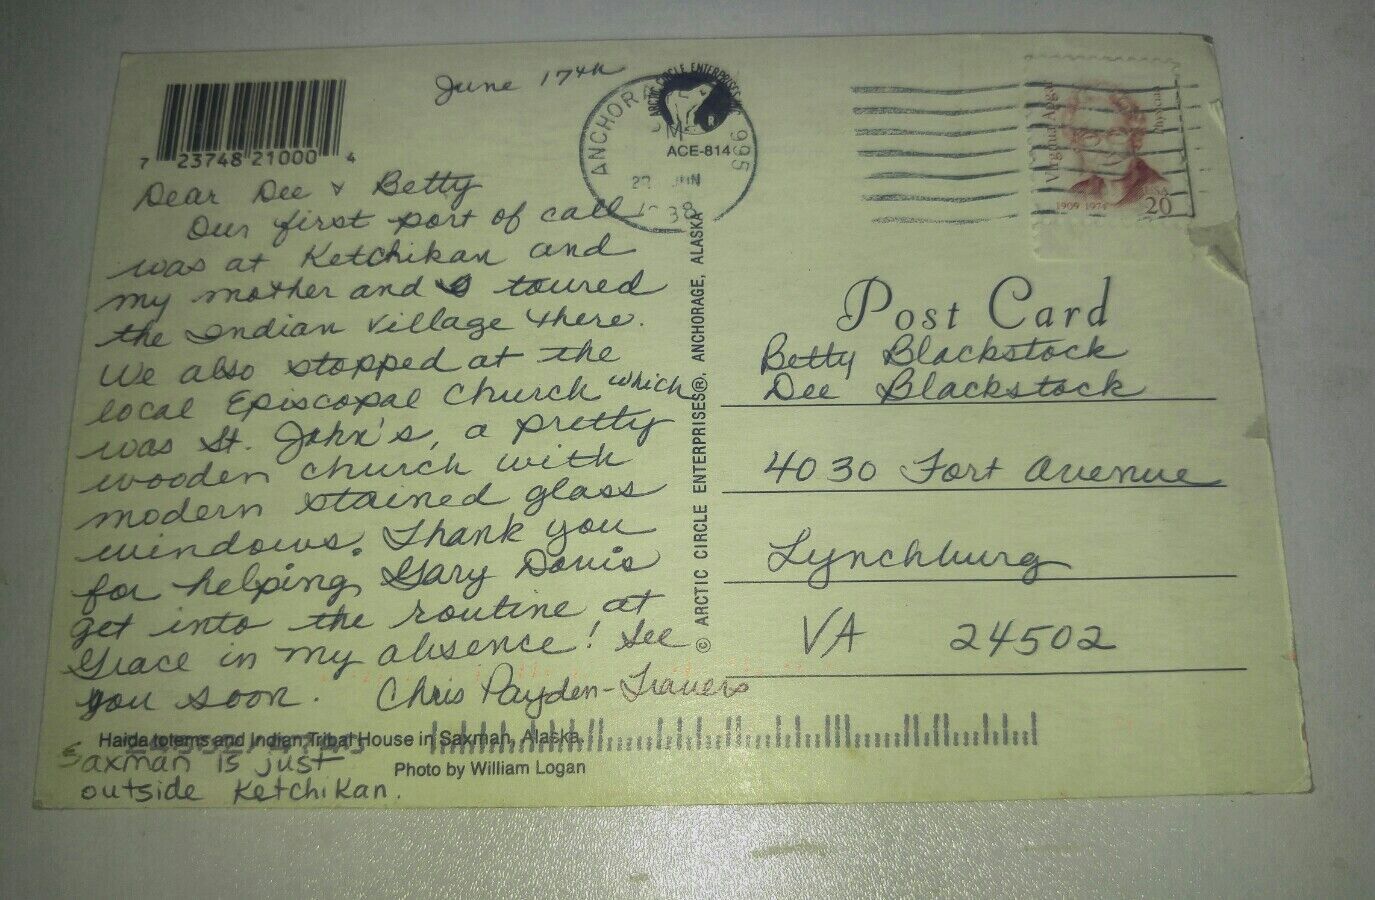 June 17th
7 23748 21000 4
ARCTIC CIRCLE ENTERPRISES
ANCHORA 995
ACE-814
JUN
Virginia Apgar
Physician
1909-1974
USA
20
Dear Dee & Betty
Our first port of call
was at Ketchikan and
my mother and I toured
the Indian Village there.
We also stopped at the
local Episcopal Church which
was St. John's, a pretty
wooden church with
modern stained glass
windows. Thank you
for helping Gary Davis
get into the routine at
Grace in my absence! See
you soon. Chris Payden-Travers
Haida totems and Indian Tribal House in Saxman, Alaska.
Photo by William Logan
Saxman is just
outside Ketchikan.
© ARCTIC CIRCLE ENTERPRISES®, ANCHORAGE, ALASKA
Post Card
Betty Blackstock
Dee Blackstock
4030 Fort Avenue
Lynchburg
VA 24502